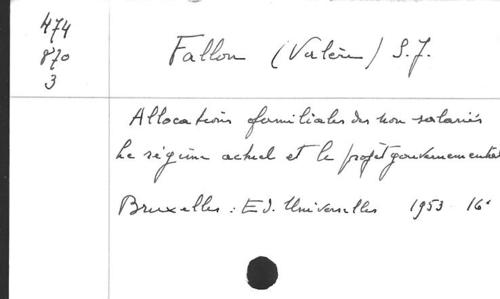 474
870
3
Fallon (Valère) S.J.
Allocations familiales des non salariés
Le régime actuel et le projet gouvernemental
Bruxelles : Ed. Universelles 1953 16°